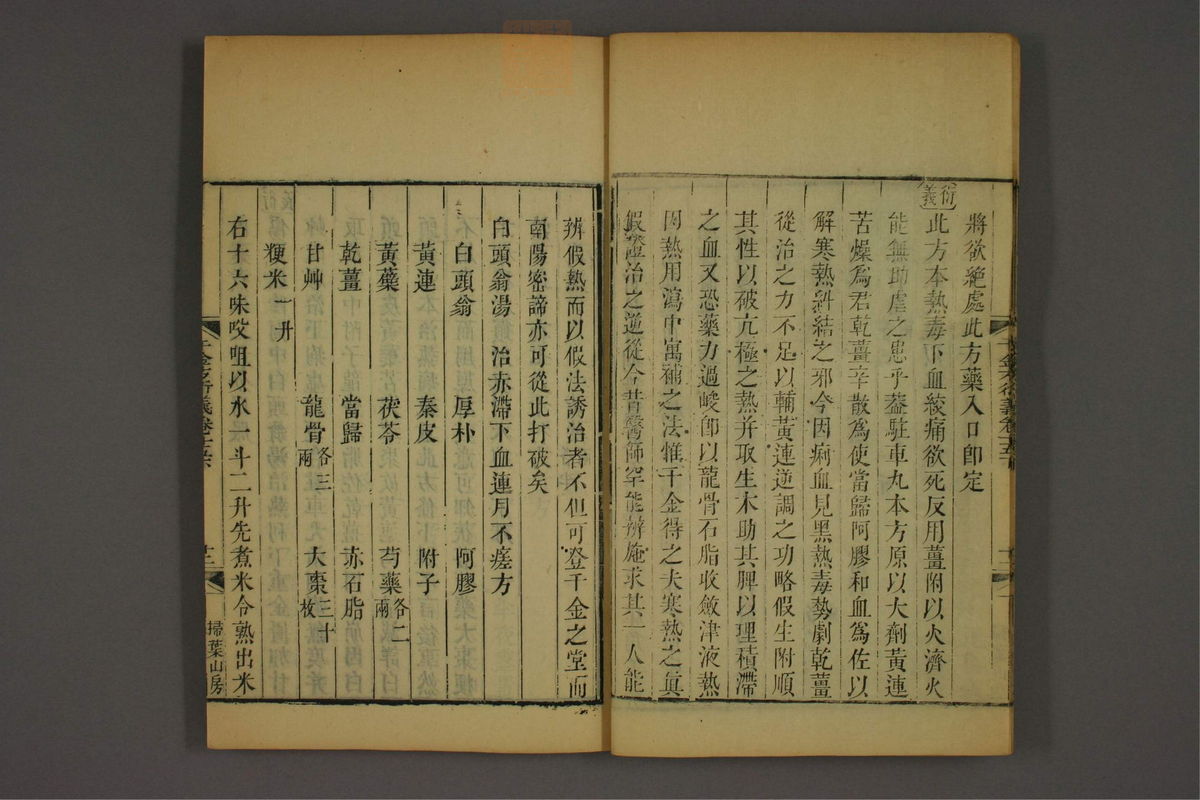 將欲絕處此方藥入口卽定
衍義
此方本熱毒下血絞痛欲死反用薑附以火濟火
能無助虐之患乎葢駐車丸本方原以大劑黃連
苦燥爲君乾薑辛散爲使當歸阿膠和血爲佐以
解寒熱糾結之邪今因痢血見黑熱毒勢劇乾薑
從治之力不足以輔黃連逆調之功略假生附順
其性以破亢極之熱并取生木助其脾以理積滯
之血又恐藥力過峻卽以龍骨石脂收斂津液熱
因熱用瀉中寓補之法惟千金得之夫寒熱之眞
假證治之逆從今昔醫師罕能辨龐求其一人能
辨假熱而以假法誘治者不但可登千金之堂而
南陽密諦亦可從此打破矣
白頭翁湯 治赤滯下血連月不瘥方
白頭翁 厚朴 阿膠
黃連 秦皮 附子
黃蘗 茯苓 芍藥各二兩
乾薑 當歸 赤石脂
甘艸 龍骨各三兩 大棗三十枚
粳米一升
右十六味㕮咀以水一斗二升先煮米令熟出米
千金方衍義卷十五下
廿二
掃葉山房